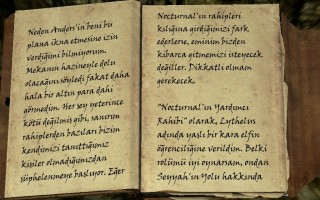 Neden Anders'in beni bu
plana ikna etmesine izin
verdiğimi bilmiyorum.
Mekanın hazineyle dolu
olacağını söyledi fakat daha
hala bir altın para dahi
görmedim. Her şey yeterince
kötü değilmiş gibi, sanırım
rahiplerden bazıları bizim
kendimizi tanıttığımız
kişiler olmadığımızdan
şüphelenmeye başlıyor. Eğer
Nocturnal'ın rahipleri
kılığına girdiğimizi fark
ederlerse, eminim bizden
kibarca gitmemizi isteyecek
değiller. Dikkatli olmam
gerekecek.
"Nocturnal'ın Yardımcı
Rahibi" olarak, Lythelus
adında yaşlı bir kara elfin
öğrenciliğine verildim. Belki
rolümü iyi oynarsam, ondan
Seyyah'ın Yolu hakkında